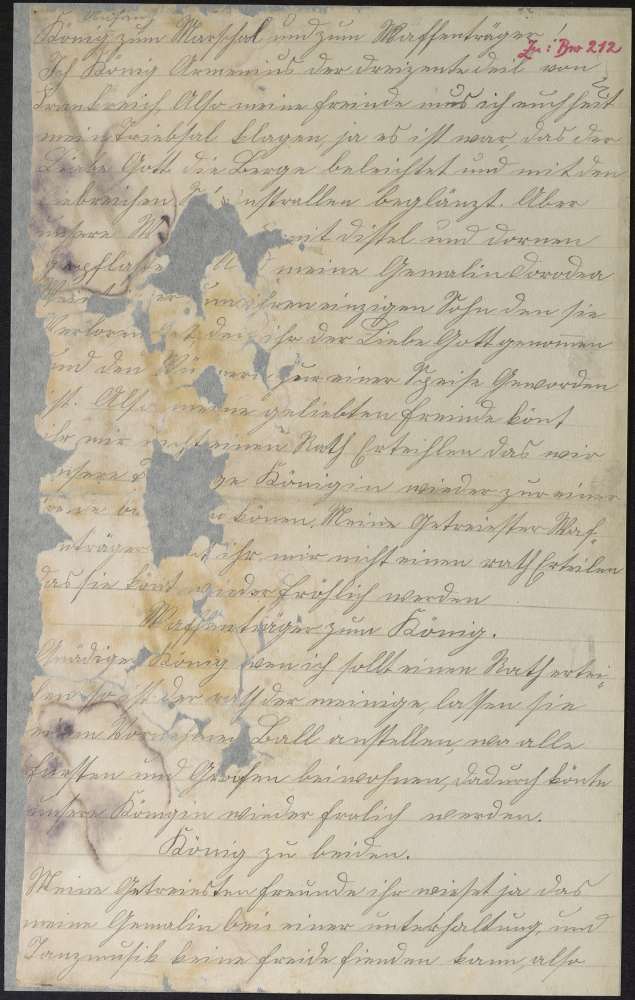 Anfang
König zum Marschal und zum Waffenträger!
Zu: Bro 212
Ich König Armenius der dreizente deil von
Frankreich, Also meine freinde mus ich euch heit
mein Triebsal klagen, ja es ist war, das der
Liebe Gott die Berge beleichtet und mit den
liebreichen strallen beglänzt. Aber
unsere mit distel und dornen
gepflaste meine Gemalin Dorodea
um ihren einzigen Sohn den sie
Verloren hat, den ihr der Liebe Gott genommen
und den zur einer Speise Geworden
ist. Also meine geliebten freinde könt
ihr mir nicht einen Rath Erteihlen das wir
unsere ge Königin wieder zur einer
können. Meine Getreiester Waf-
enträger ihr mir nicht einen rath Erteilen
das sie könt wieder fröhlich werden
Waffenträger zum König.
Gnädiger König wen ich sollt einen Rath ertei-
len so ist der rath der meinige, lassen sie
einen Ball anstellen, wo alle
fürsten und Grafen beiwohnen, dadurch könte
unsere Königin wieder frolich werden.
König zu beiden.
Meine Getreiesten freunde ihr wisset ja das
meine Gemalin bei einer unterhaltung, und
Tanzmusik keine freide fienden kann, also